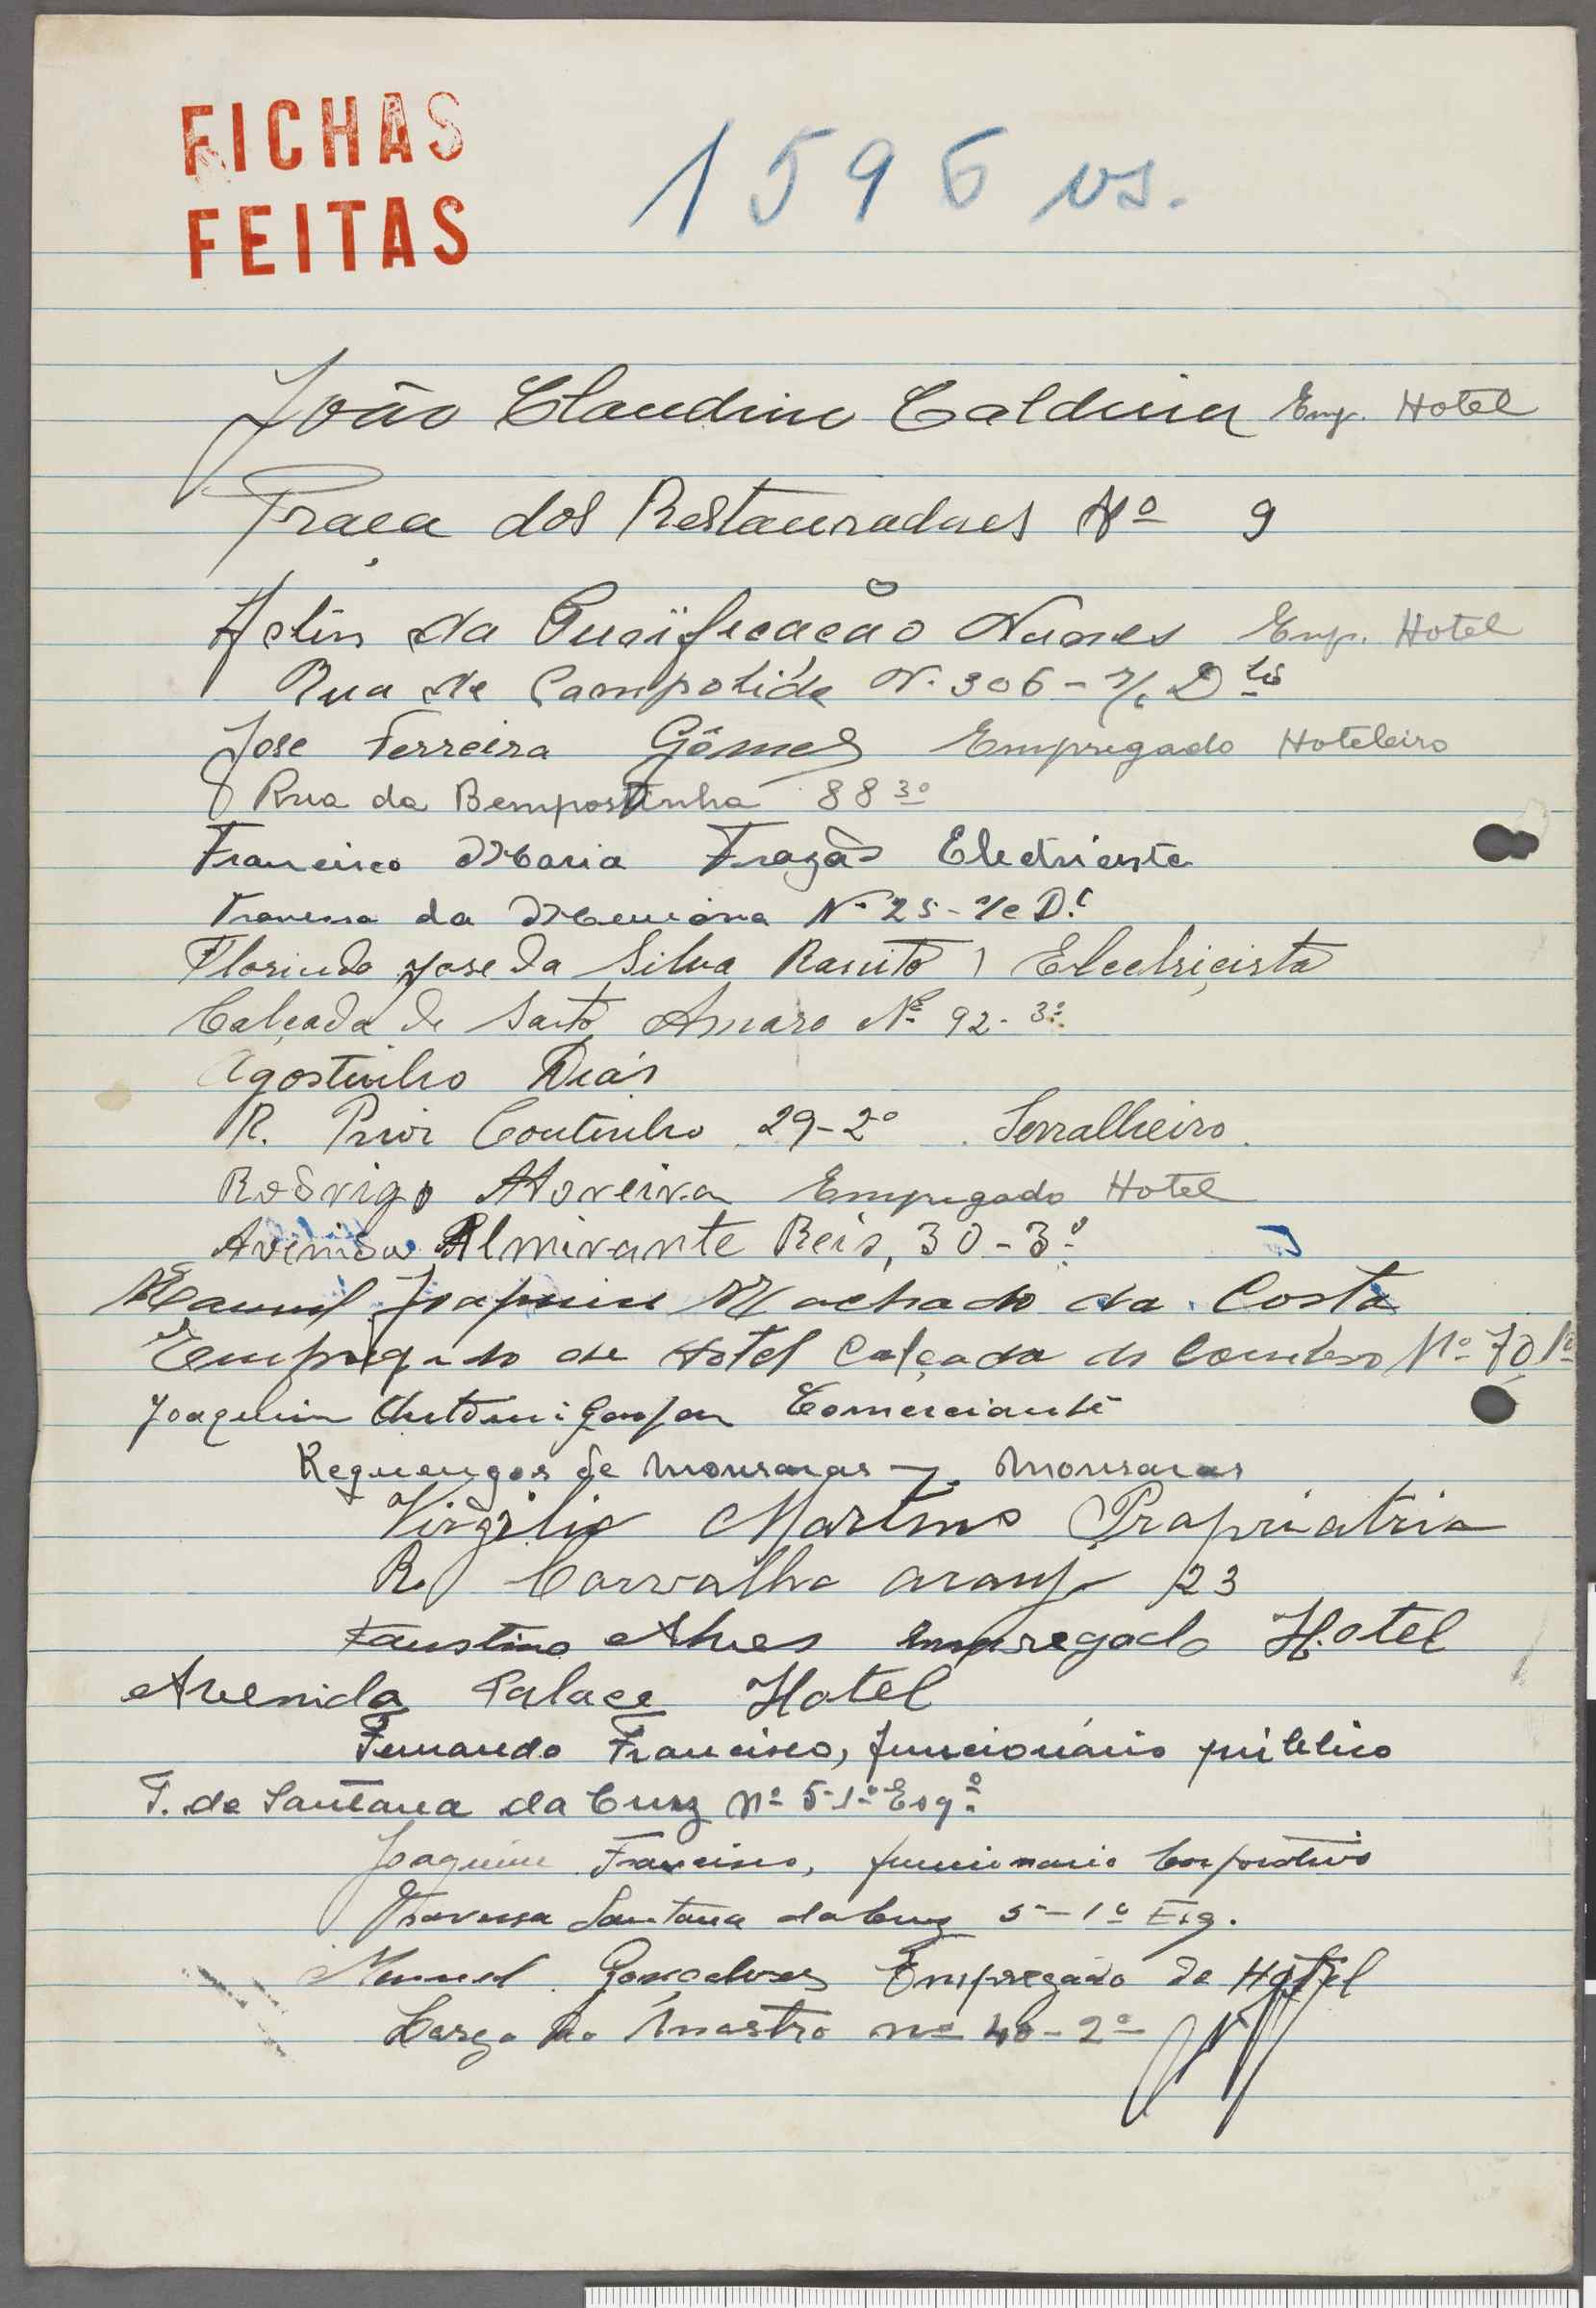 FICHAS
FEITAS
1596 vs.
João Claudino Caldeira Emp. Hotel
Praça dos Restauradores Nº 9
da Purificação Nunes Emp. Hotel
Rua de Campolide N. 306 - r/c D
Jose Ferreira Gomes Empregado Hoteleiro
Rua da Bempostinha 88 3º
Francisco Maria Frazão Electricista
Travessa da Memória Nº 25 - r/c D.
Florindo Jose da Silva Electricista
Calçada de Santo Amaro Nº 92 - 3º
Agostinho Dias
R. Prior Coutinho 29-2º Serralheiro.
Rodrigo Moreira Empregado Hotel
Avenida Almirante Reis, 30-3º
Manuel Joaquim Machado da Costa
Empregado de Hotel Calçada do Combro Nº 70 1º
Joaquim Comerciante
Reguengos de Monsaraz - Monsaraz
Virgilio Martins
R. Carvalho Araujo 23
Faustino Alves empregado Hotel
Avenida Palace Hotel
Fernando Francisco, funcionário público
T. de Santana da Cruz nº 5-1º Esqº
Joaquim Francisco, funcionario Corporativo
Travessa Santana da Cruz 5-1º Esq.
Manuel Gonçalves Empregado de Hotel
Largo do Mastro nº 40-2º